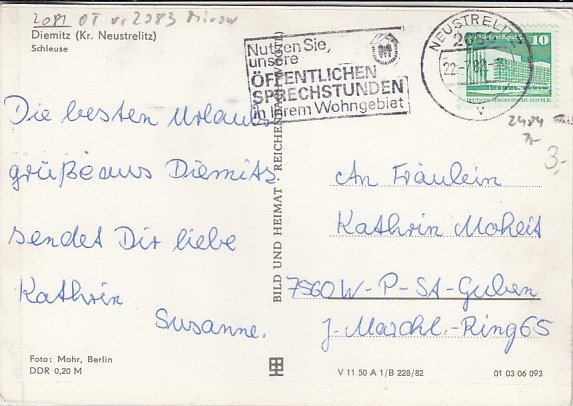 2081 OT v. 2083 Mirow
Diemitz (Kr. Neustrelitz)
Schleuse
Nutzen Sie,
unsere
ÖFFENTLICHEN
SPRECHSTUNDEN
in Ihrem Wohngebiet
NEUSTRELITZ
22-7.82-
v
10
DEUTSCHE DEMOKRATISCHE REPUBLIK
2484
3,-
Die besten Urlaubs-
grüße aus Diemitz
sendet Dir liebe
Kathrin
Susanne.
BILD UND HEIMAT REICHENBACH (VOGTL)
An Fräulein
Kathrin Moheit
7560 W-P-St-Guben
J.-Marchl.-Ring 65
Foto: Mohr, Berlin
DDR 0,20 M
V 11 50 A 1/B 228/82
01 03 06 093